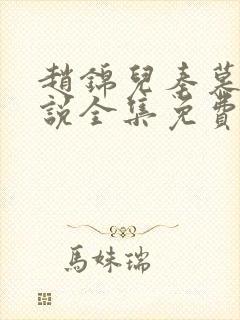 趙錦兒秦慕
說全集免費
馬妹瑞